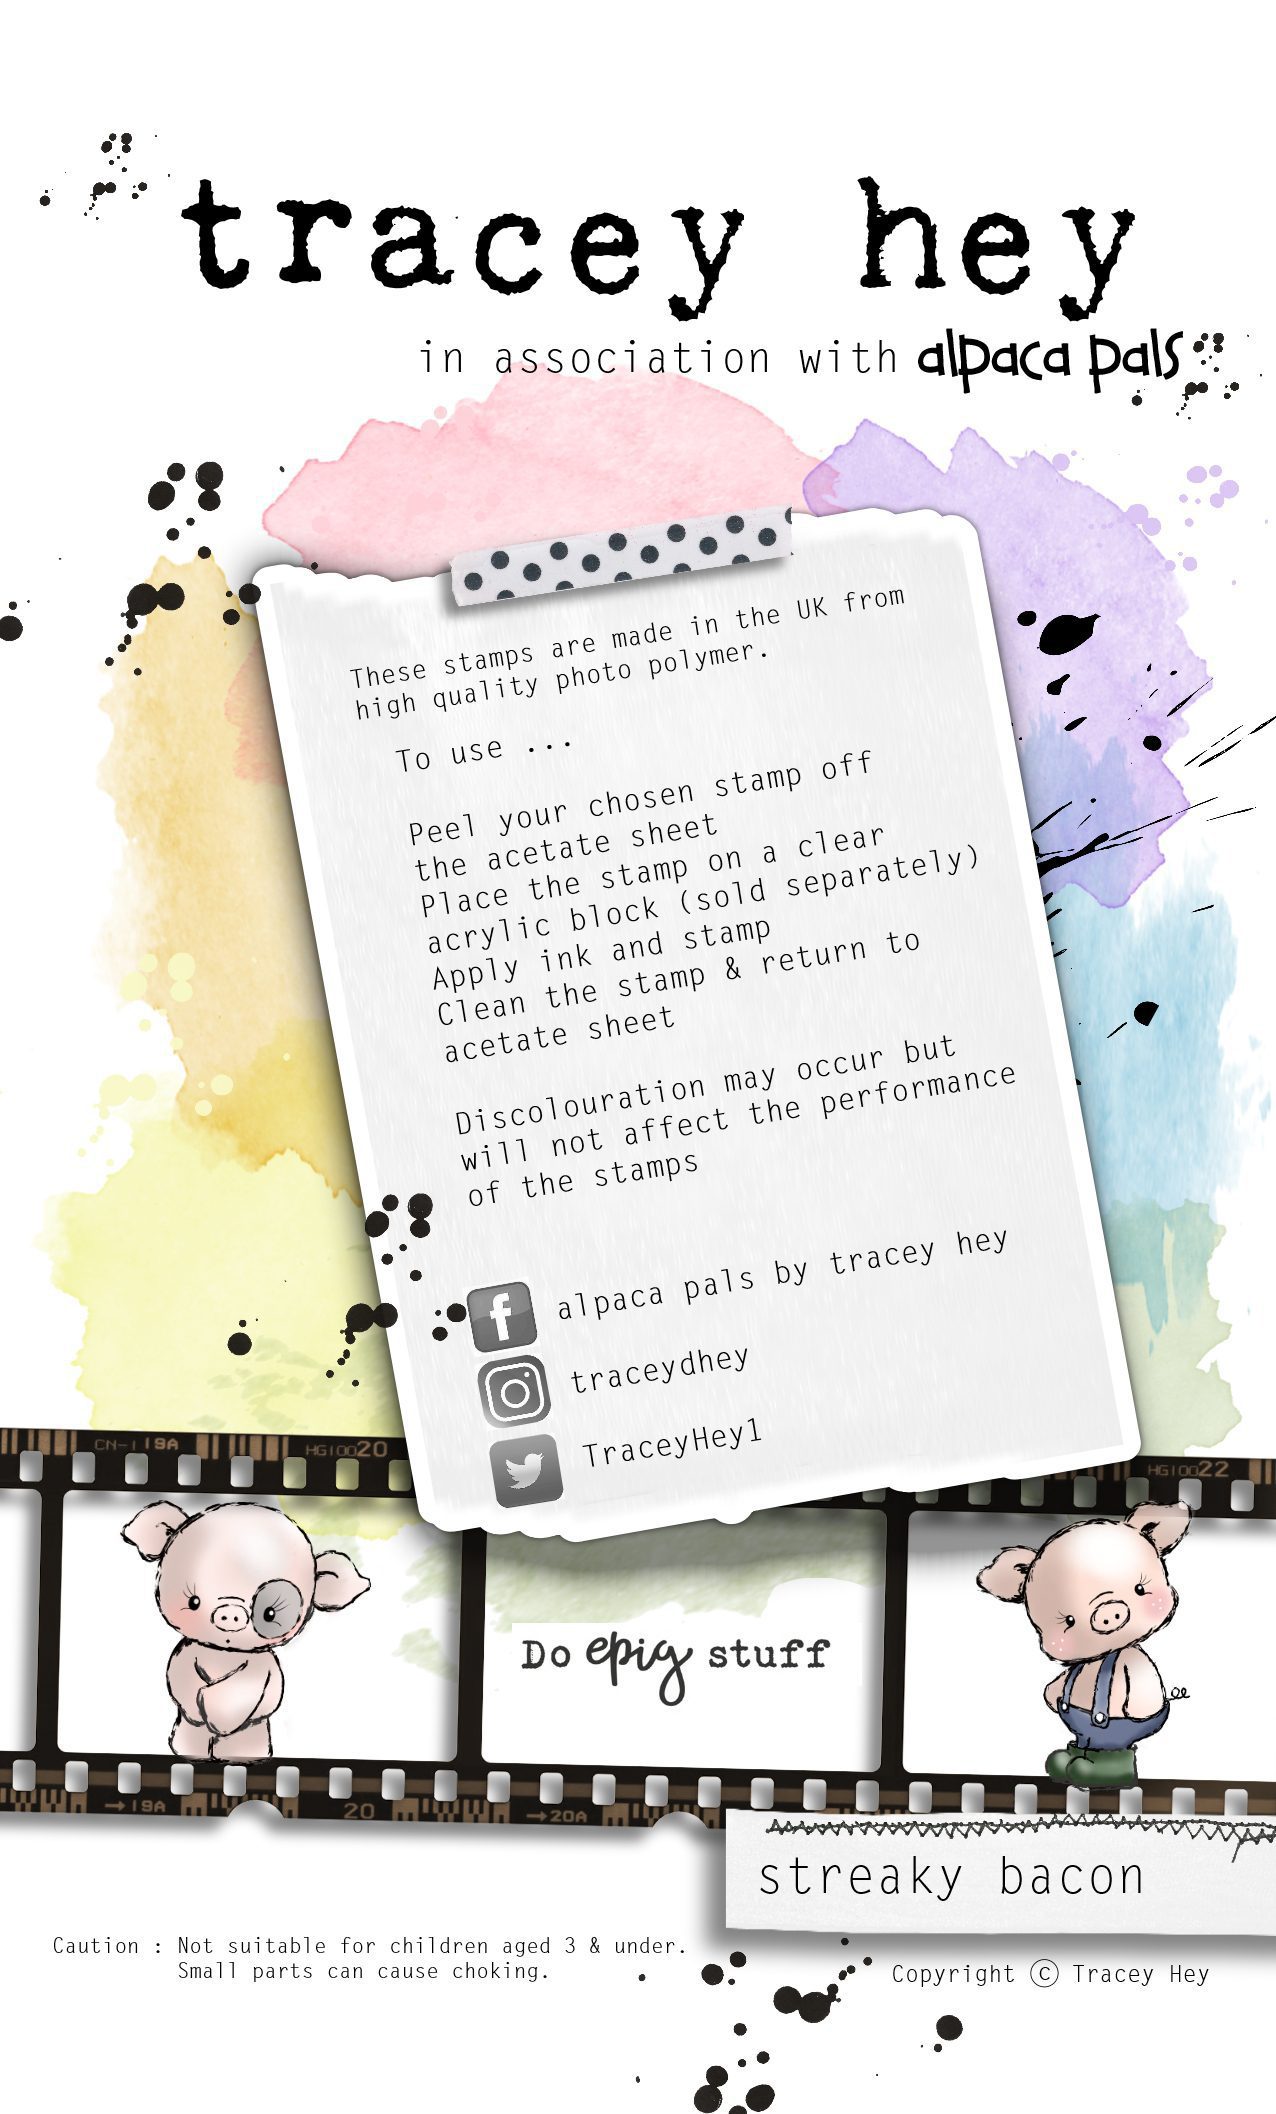 tracey hey
in association with alpaca pals
These stamps are made in the UK from
high quality photo polymer.
To use ...
Peel your chosen stamp off
the acetate sheet
Place the stamp on a clear
acrylic block (sold separately)
Apply ink and stamp
Clean the stamp & return to
acetate sheet
Discolouration may occur but
will not affect the performance
of the stamps
alpaca pals by tracey hey
traceydhey
TraceyHey1
CN-1 19A
HG10020
HG10022
Do epig stuff
→19A
20
→20A
streaky bacon
Caution : Not suitable for children aged 3 & under.
Small parts can cause choking.
Copyright © Tracey Hey